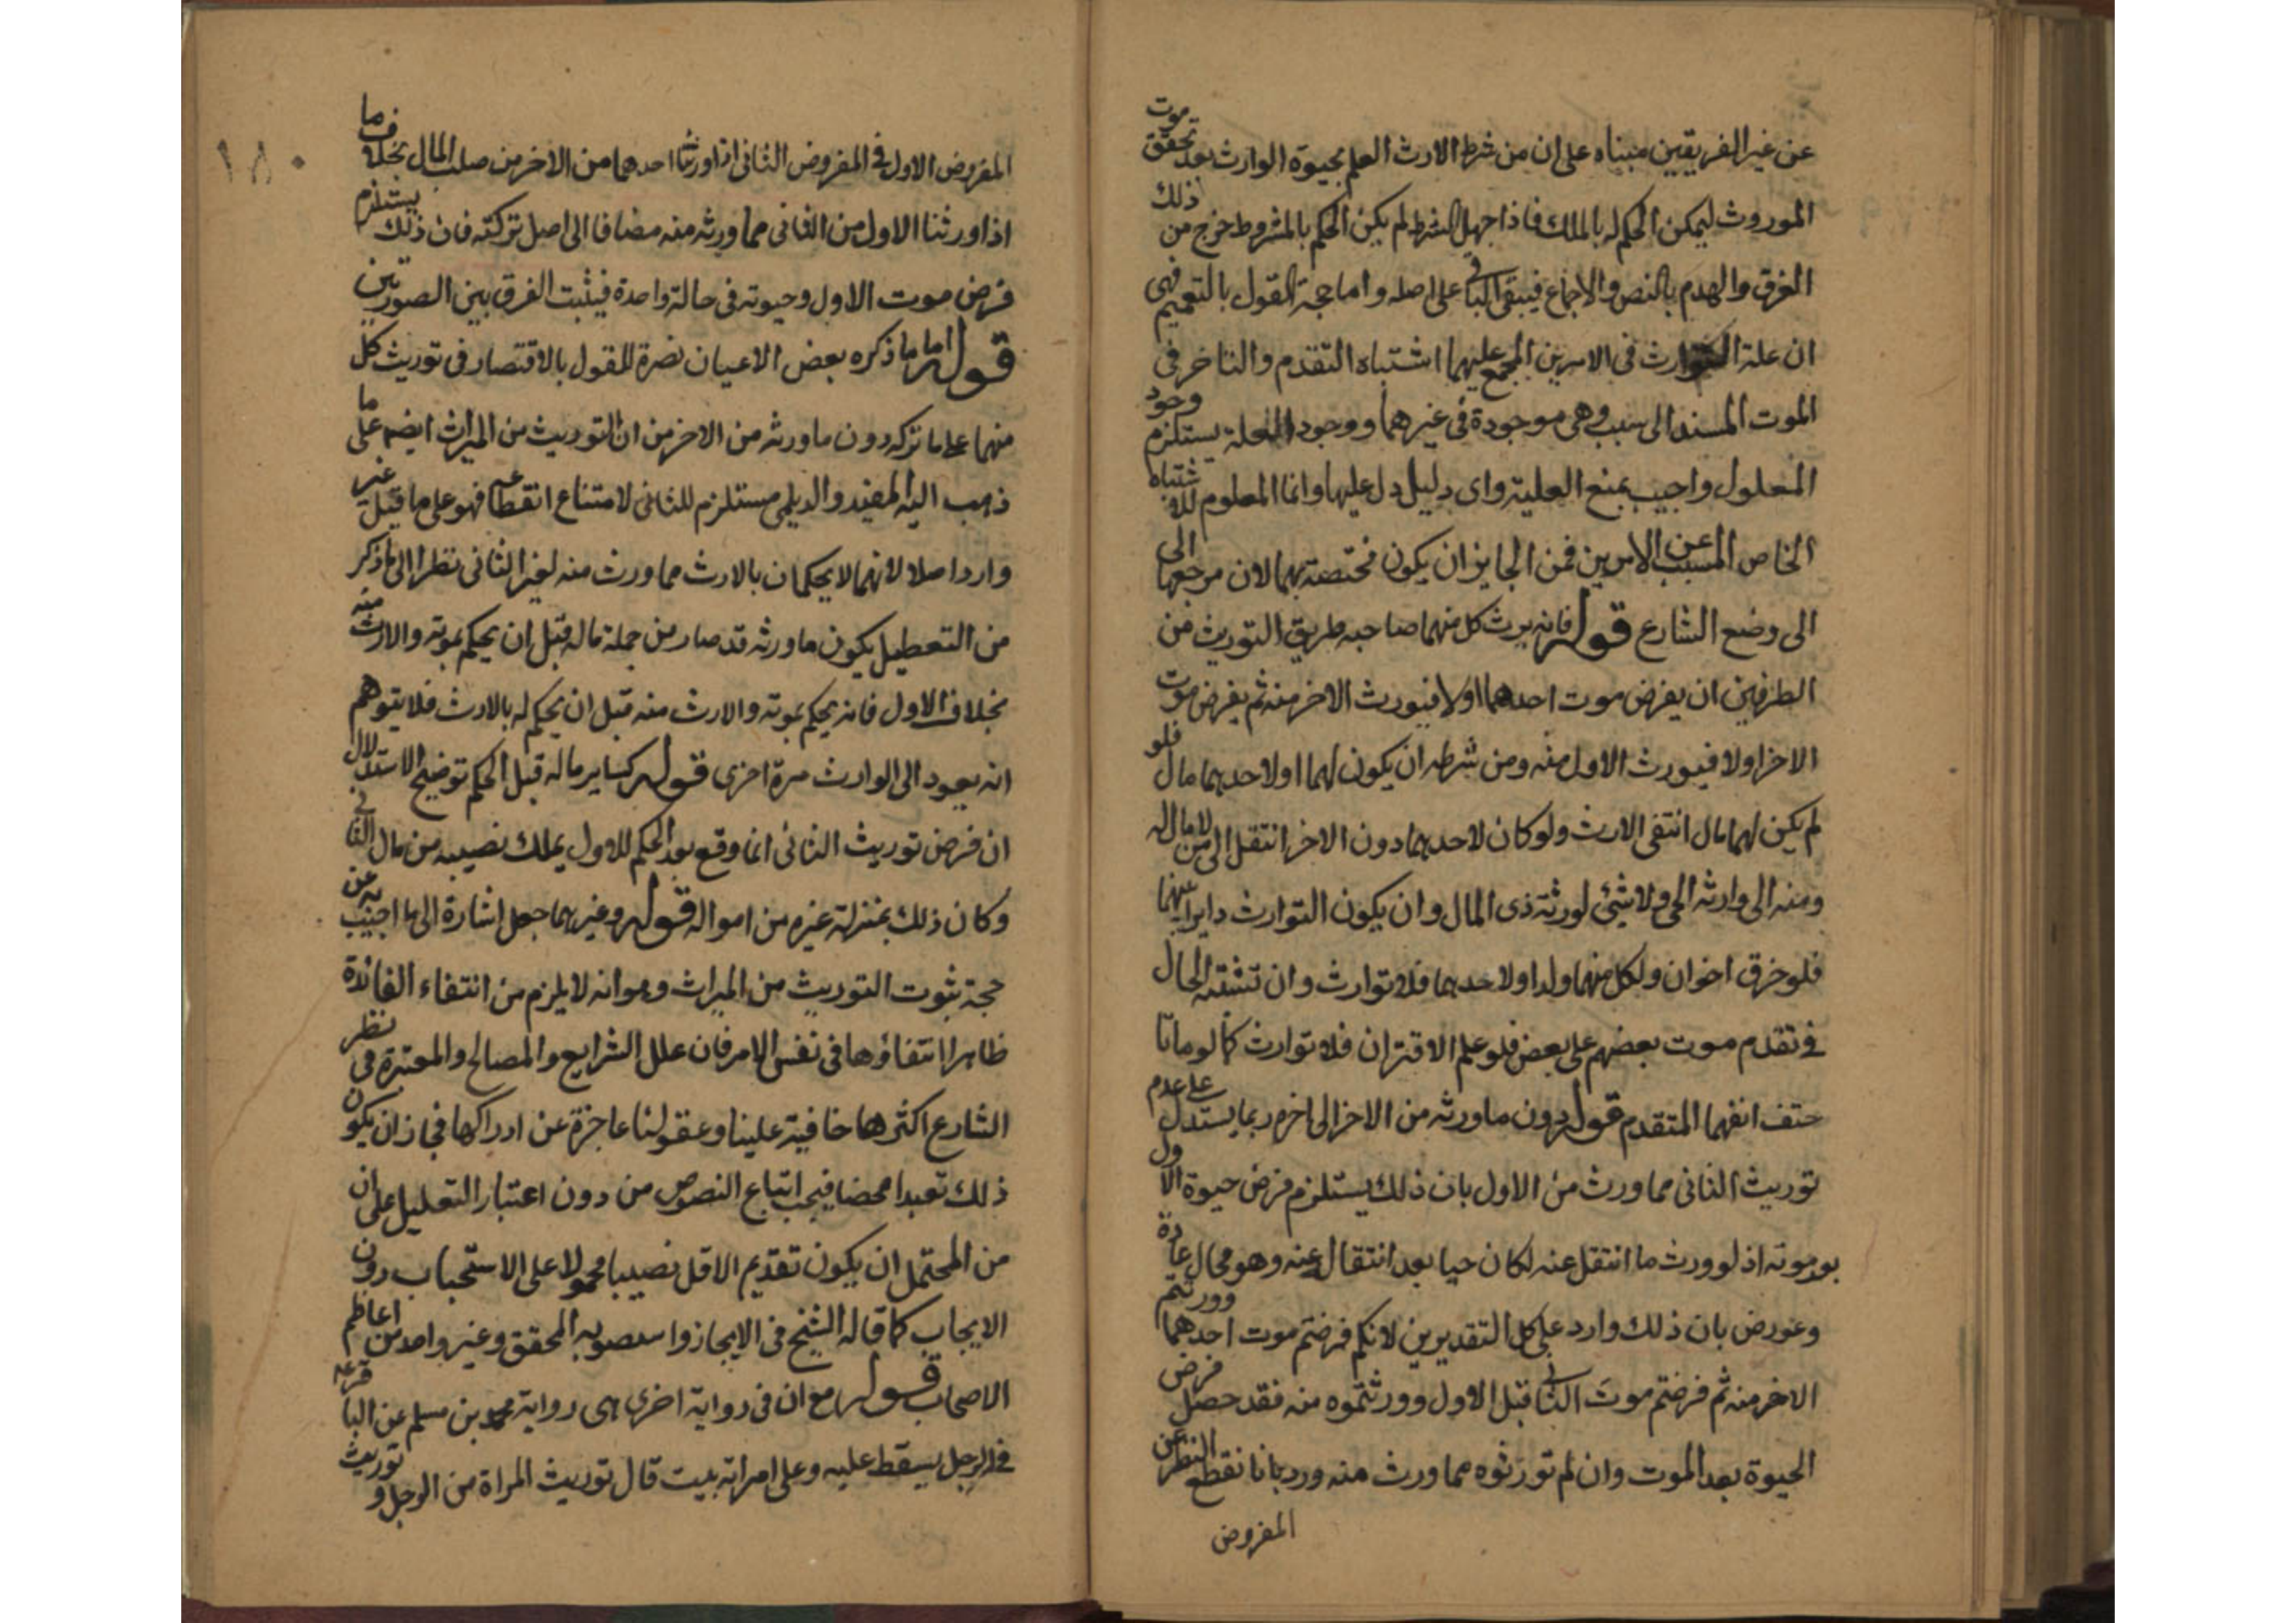 عن غير الفريقين مبناه على ان من شرط الارث العلم بحيوة الوارث بعد تحقق موت
الموروث ليمكن الحكم له بالملك فاذا جهل الشرط لم يكن الحكم بالمشروط خرج من ذلك
الغرق والهدم بالنص والاجماع فيبقى الباقى على اصله واما حجة القول بالتعميم فهى
ان علة التوارث فى الامرين المجمع عليهما اشتباه التقدم والتاخر فى
الموت المسند الى سبب وهى موجودة فى غيرهما ووجود العلة يستلزم وجود
المعلول واجيب بمنع العلية واى دليل دل عليها وانما المعلوم للاشتباه
الخاص المسبب عن الامرين فمن الجايز ان يكون مختصة بهما لان مرجعها الى
الى وضع الشارع قوله فانه يرث كل منهما صاحبه طريق التوريث من
الطرفين ان يفرض موت احدهما اولا فيورث الاخر منه ثم يفرض موت
الاخر اولا فيورث الاول منه ومن شرطه ان يكون لهما او لاحدهما مال فلو
لم يكن لهما مال انتفى الارث ولو كان لاحدهما دون الاخر انتقل الى من لا مال له
ومنه الى وارثه الحى ولا شئ لورثة ذى المال وان يكون التوارث دايرا بينهما
فلو غرق اخوان ولكل منهما ولد او لاحدهما فلا توارث وان تشتبه الحال
فى تقدم موت بعضهم على بعض فلو علم الاقتران فلا توارث كما لو ماتا
حتف انفهما المتقدم قوله دون ما ورثه من الاخر الى اخره ربما يستدل على عدم
توريث الثانى مما ورث من الاول بان ذلك يستلزم فرض حيوة الاول
بعد موته اذ لو ورث ما انتقل عنه لكان حيا بعد انتقال عنه وهو محال عادة
وعورض بان ذلك وارد على كل التقديرين لانكم فرضتم موت احدهما وورثتم
الاخر منه ثم فرضتم موت الثانى قبل الاول وورثتموه منه فقد حصل فرض
الحيوة بعد الموت وان لم تورثوه مما ورث منه ورد بانا نقطع النظر عن
المفروض
١٨٠
المفروض الاول فى المفروض الثانى اذا ورثنا احدهما من الاخر من صلب المال بخلاف ما
اذا ورثنا الاول من الثانى مما ورثه منه مضافا الى اصل تركته فان ذلك يستلزم
فرض موت الاول وحيوته فى حالة واحدة فيثبت الفرق بين الصورتين
قوله اما ما ذكره بعض الاعيان نصرة للقول بالاقتصار فى توريث كل
منهما على ما تركه دون ما ورثه من الاخر من ان التوريث من الميراث ايضم على ما
ذهب اليه المفيد والديلمى مستلزم للثانى لامتناع انقطاعه فهو على ما قيل غير
وارد اصلا لانهما لا يحكمان بالارث مما ورث منه لغير الثانى نظرا الى ما ذكر
من التعطيل بكون ما ورثه قد صار من جملة ماله قبل ان يحكم بموته والارث منه
بخلاف الاول فانه يحكم بموته والارث منه قبل ان يحكم له بالارث فلا يتوهم
انه يعود الى الوارث مرة اخرى قوله كساير ماله قبل الحكم توضيح الاستدلال
ان فرض توريث الثانى انما وقع بعد الحكم للاول يملك نصيبه من مال الثانى
وكان ذلك بمنزلة غيره من امواله قوله وغيرهما جعل اشارة الى ما اجيب به عن
حجة ثبوت التوريث من الميراث وهو انه لا يلزم من انتفاء الفائدة
ظاهرا انتفاؤها فى نفس الامر فان علل الشرايع والمصالح والمعتبرة فى نظر
الشارع اكثرها خافية علينا وعقولنا عاجزة عن ادراكها فجاز ان يكون
ذلك تعبدا محضا فيجب اتباع النصوص من دون اعتبار التعليل على ان
من المحتمل ان يكون تقديم الاقل نصيبا محمولا على الاستحباب دون
الايجاب كما قاله الشيخ فى الايجاز واستصوبه المحقق وغير واحد من اعاظم
الاصحاب قوله مع ان فى رواية اخرى هى رواية محمد بن مسلم عن الباقر عه
فى الرجل يسقط عليه وعلى امراته بيت قال توريث المراة من الرجل و توريث